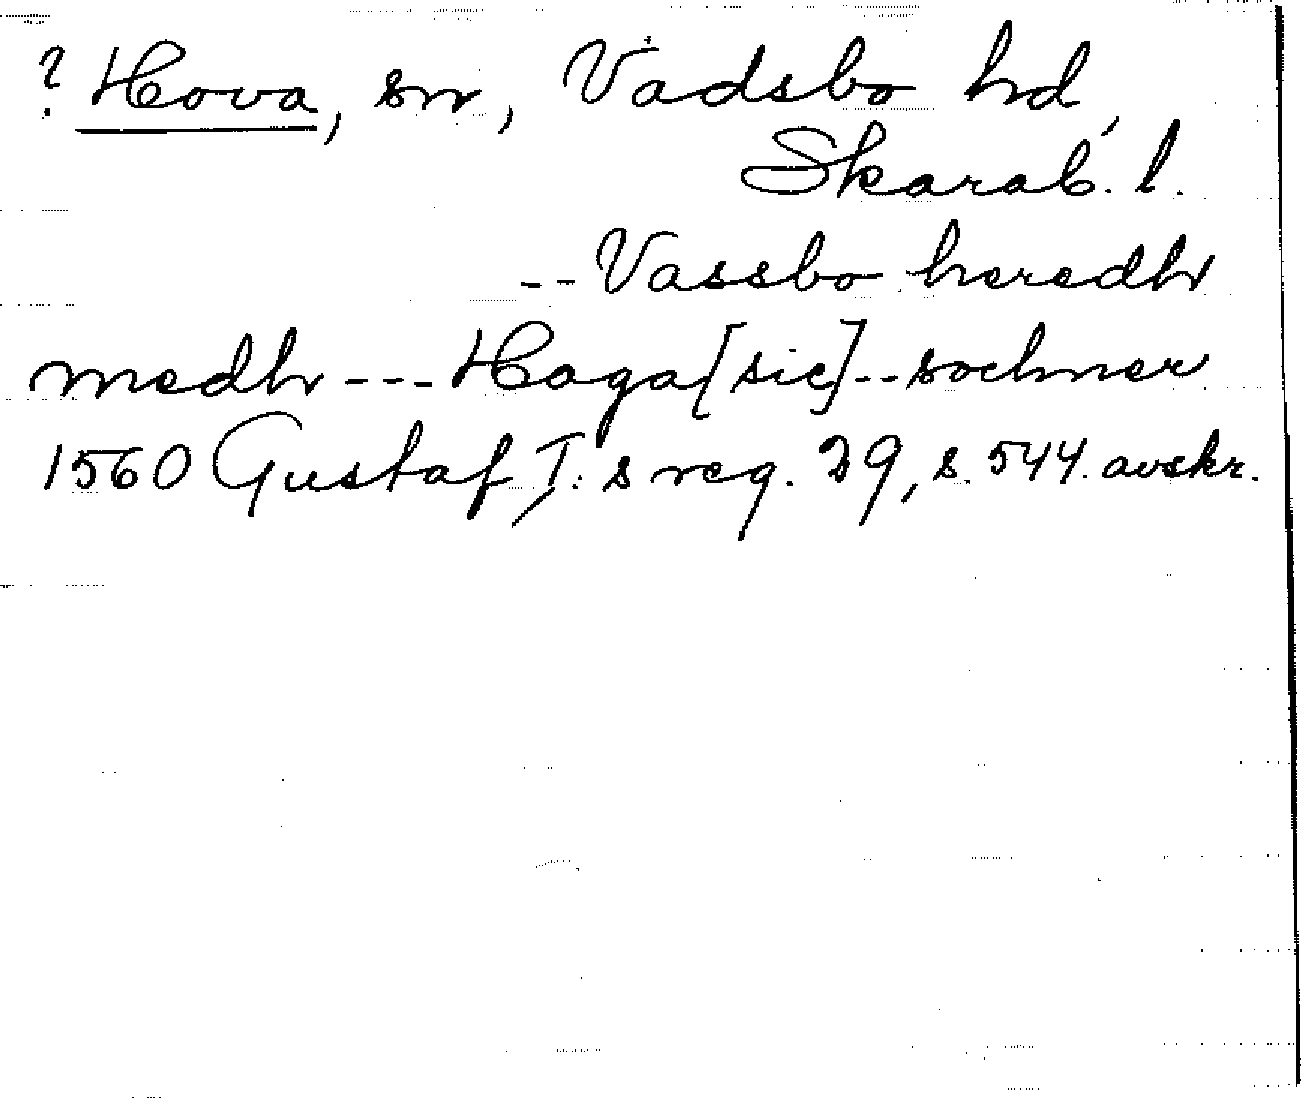 ? Hova, sn, Vadsbo hd,
Skarab. l.
-- Vassbo heredhr
medhr --- Haga [sic] -- sochner
1560 Gustaf I:s reg. 29, s. 544. avskr.